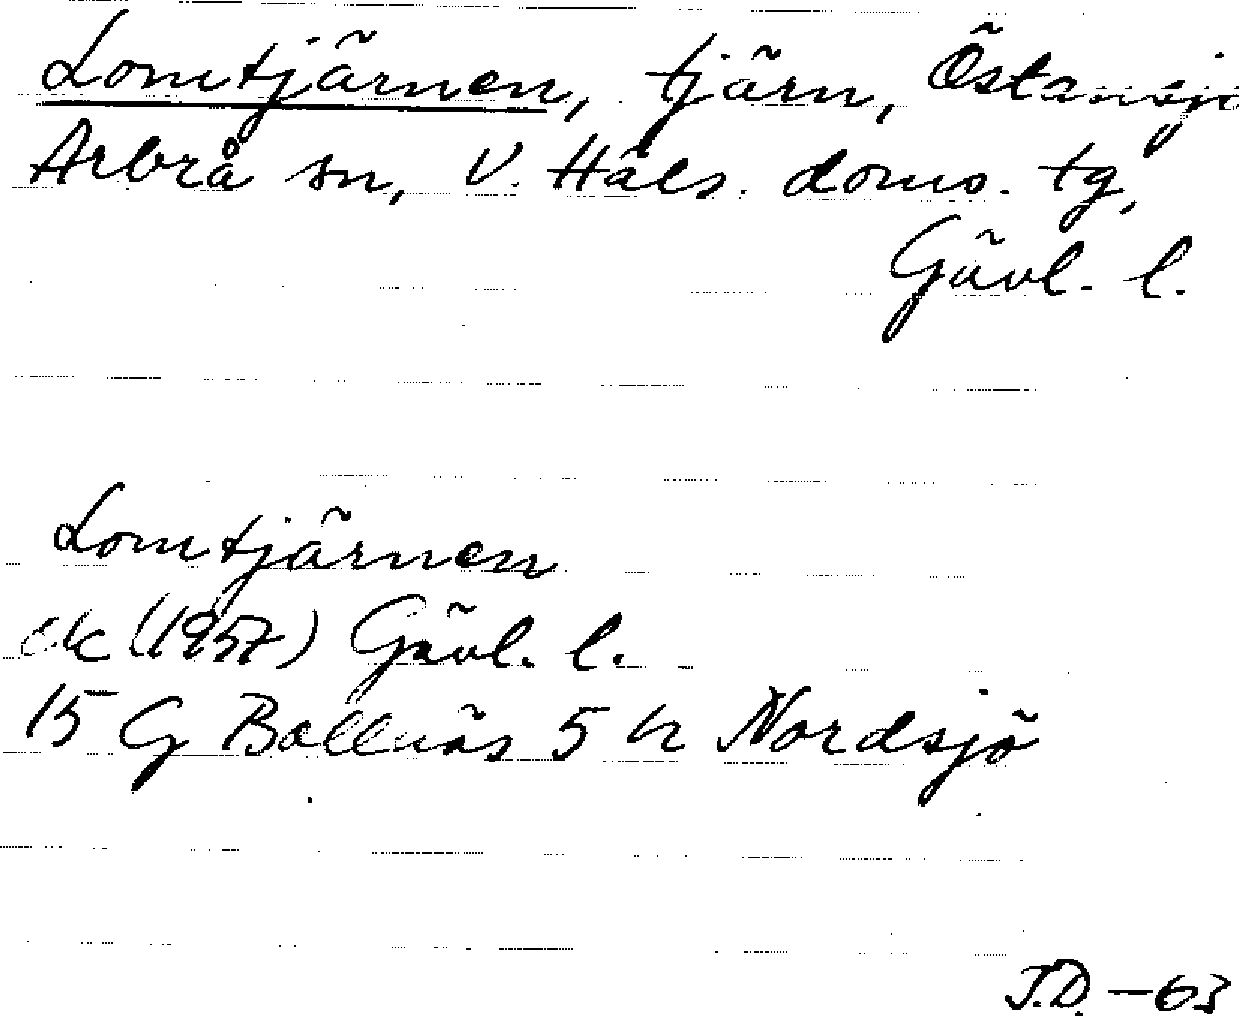 Lomtjärnen, tjärn, Östansjö
Arbrå sn, V. Häls. doms. tg,
Gävl. l.
Lomtjärnen
ek (1957) Gävl. l.
15 G Bollnäs 5 h Nordsjö
J.D. – 63